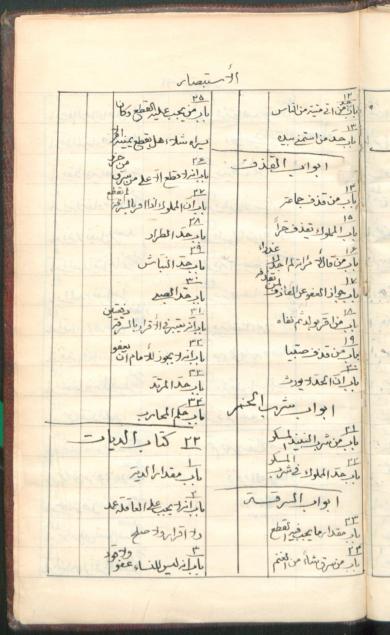 الأستبصار
١٢
باب حد من اتى ميتة من الناس
١٣
باب حد من استمنى بيده
ابواب القذف
١٤
باب من قذف جماعة
١٥
باب المملوك يقذف حراً
١٦
باب من قال لأمرأته لم اجدك عذراء
١٧
باب جواز العفو عن القاذف
١٨
باب من اقر بولد ثم نفاه
١٩
باب من قذف صبيا
٢٠
باب ان الحد لا يورث
ابواب شرب الخمر
٢١
باب من شرب النبيذ المسكر
٢٢
باب حد المملوك في شرب المسكر
ابواب السرقة
٢٣
باب مقدار ما يجب فيه القطع
٢٤
باب من سرق شيئاً من المغنم
٢٥
باب من يجب عليه القطع وكان
يسراه شلاء هل يقطع يمينه
٢٦
باب انه لا قطع الا على من سرق من حرز
٢٧
باب ان المملوك اذا اقر بالسرقة لم يقطع
٢٨
باب حد الطرار
٢٩
باب حد النباش
٣٠
باب حد الصبي
٣١
باب انه يعتبر في الأقرار بالسرقة دفعتين
٣٢
باب انه لا يجوز للأمام ان يعفو
٣٣
باب حد المرتد
٣٤
باب حكم المحارب
٢٢ كتاب الديات
١
باب مقدار الدية
٢
باب انه لا يجب على العاقلة عمد
ولا اقرار ولا صلح
٣
باب انه ليس للنساء عفو ولا قود